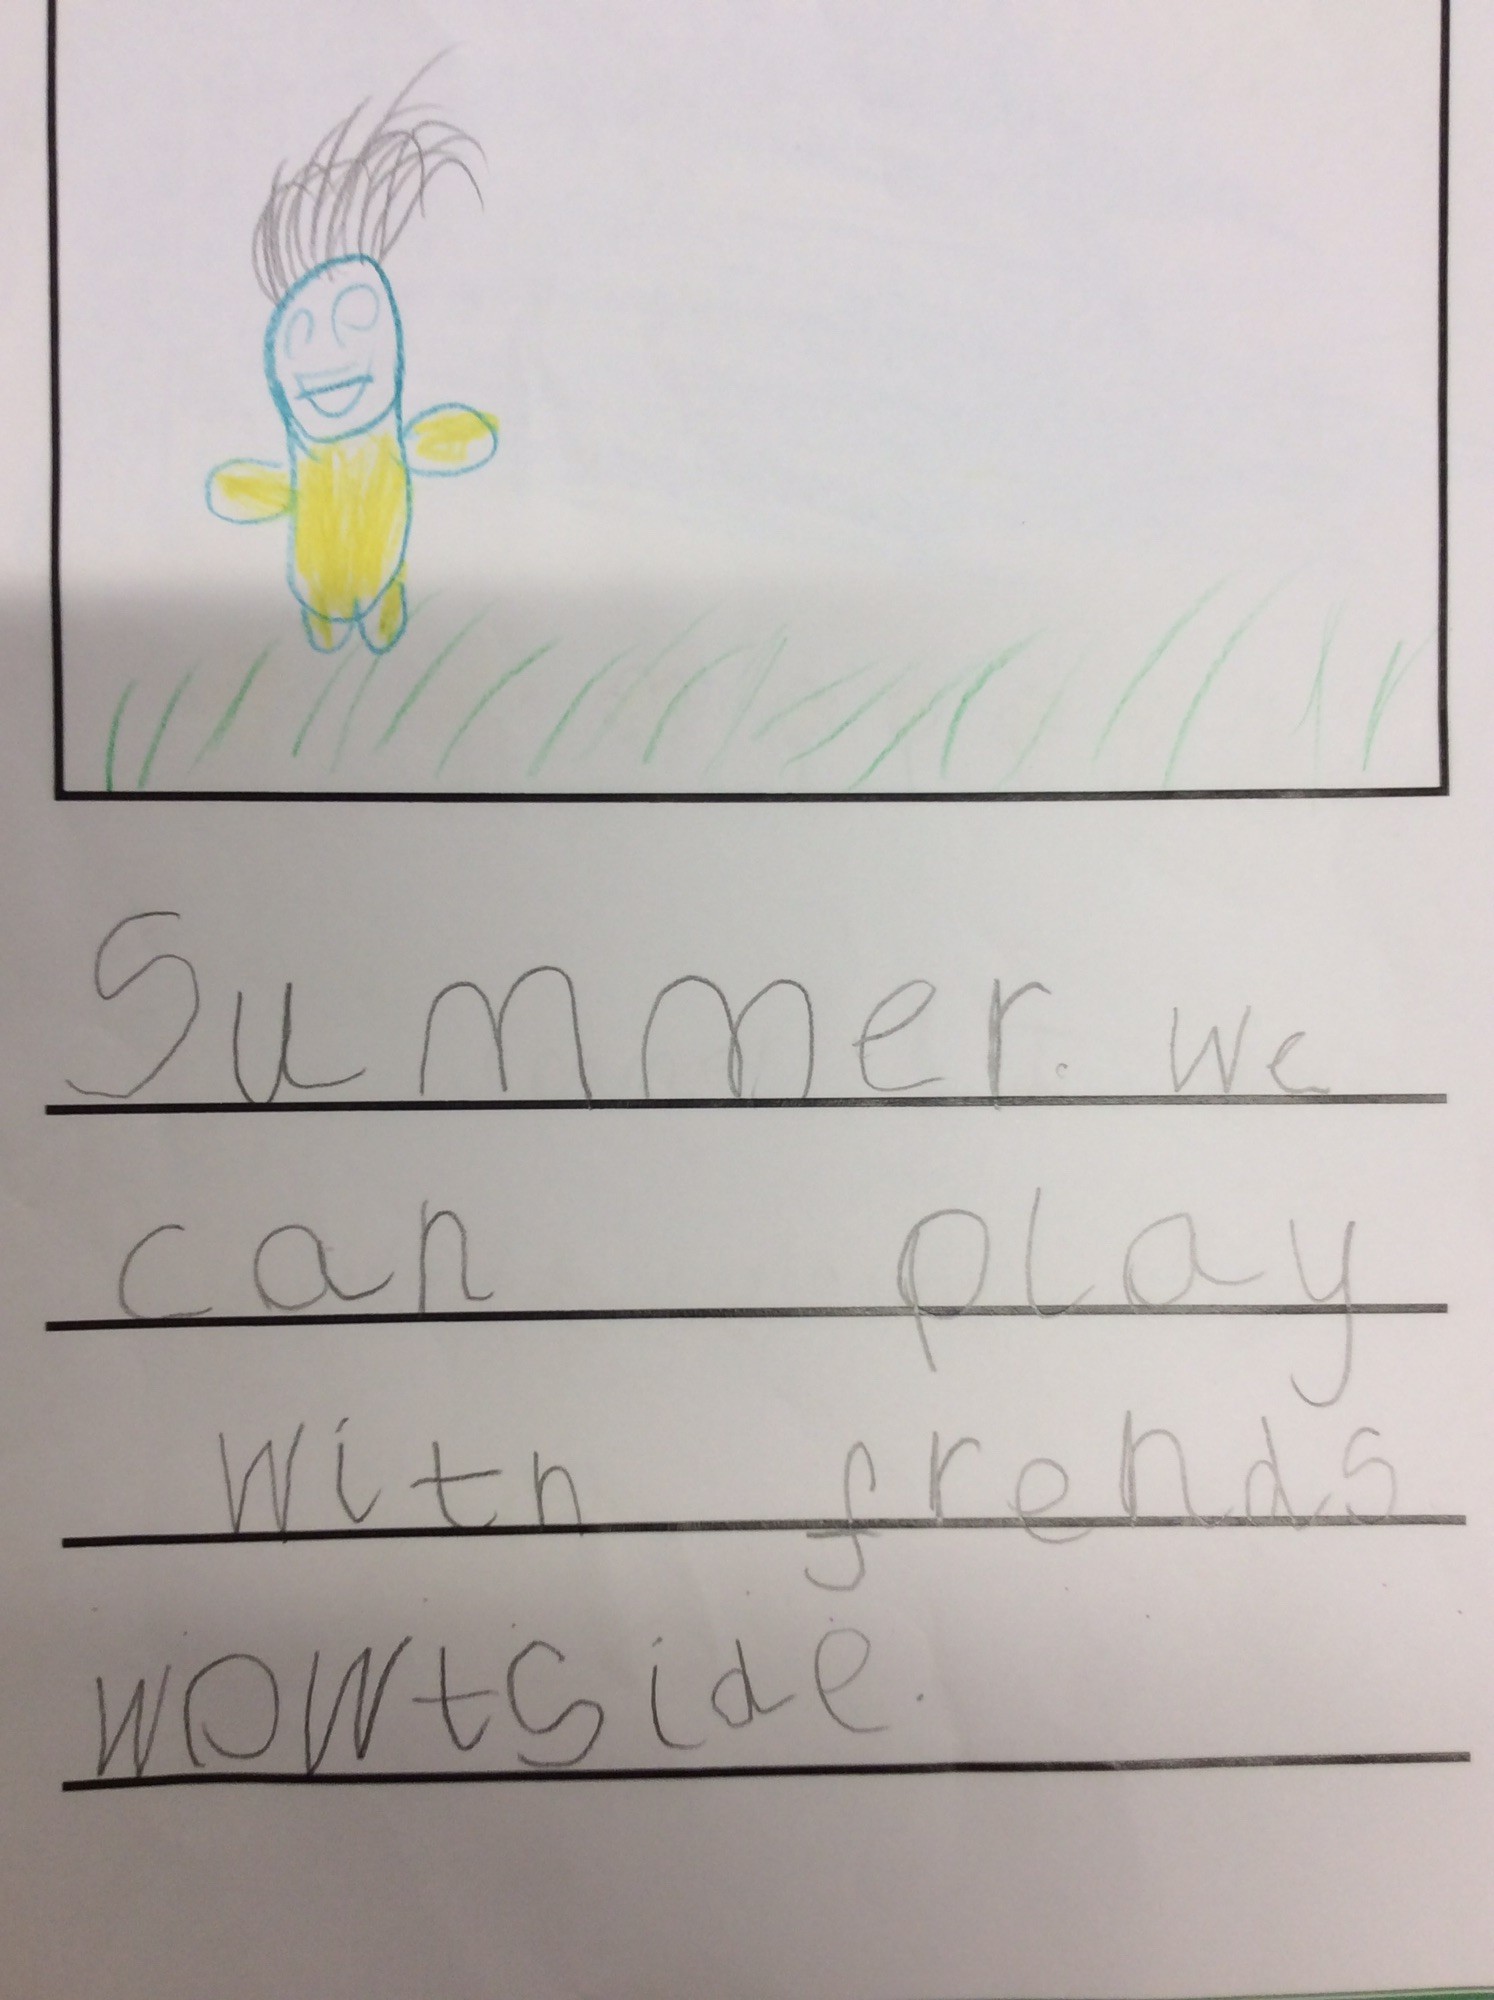 Summer. We
can play
with frends
wowtside.